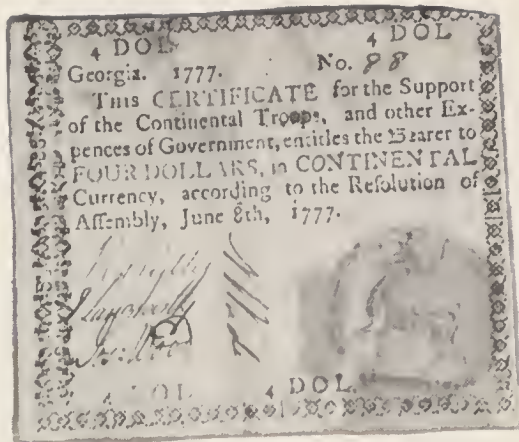 4 DOL 4 DOL
Georgia. 1777. No. 88
THIS CERTIFICATE for the Support
of the Continental Troops, and other Ex-
pences of Government, entitles the Bearer to
FOUR DOLLARS, in CONTINENTAL
Currency, according to the Resolution of
Assembly, June 8th, 1777.
4 DOL 4 DOL.